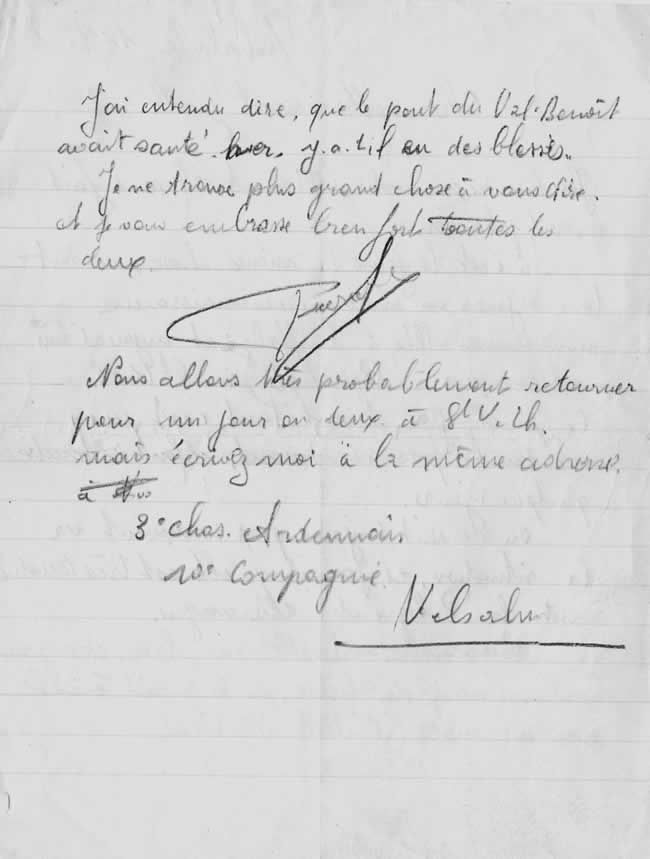 J'ai entendu dire, que le pont du Val-Benoît
avait sauté hier. y.a.t.il eu des blessés..
Je ne trouve plus grand chose à vous dire.
et je vous embrasse bien fort toutes les
deux.
Nous allons très probablement retourner
pour un jour ou deux à St V.
mais écrivez moi à la même adresse.
à
3e chas. Ardennais
10e Compagnie
Vielsalm